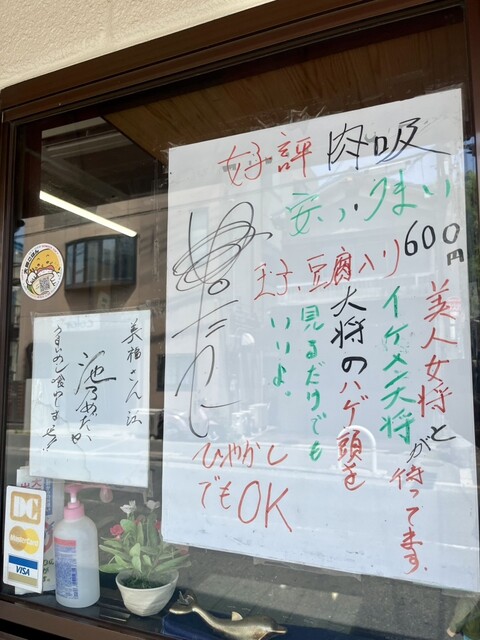 好評 肉吸
安い・うまい
玉子、豆腐入り 600円
美人女将と
イケメン大将が待ってます。
大将のハゲ頭を
見るだけでも
いいよ。
ひやかし
でもOK
美福さん江
池乃めだか
うまいめし喰わしまっせ!!
DC
MasterCard
VISA